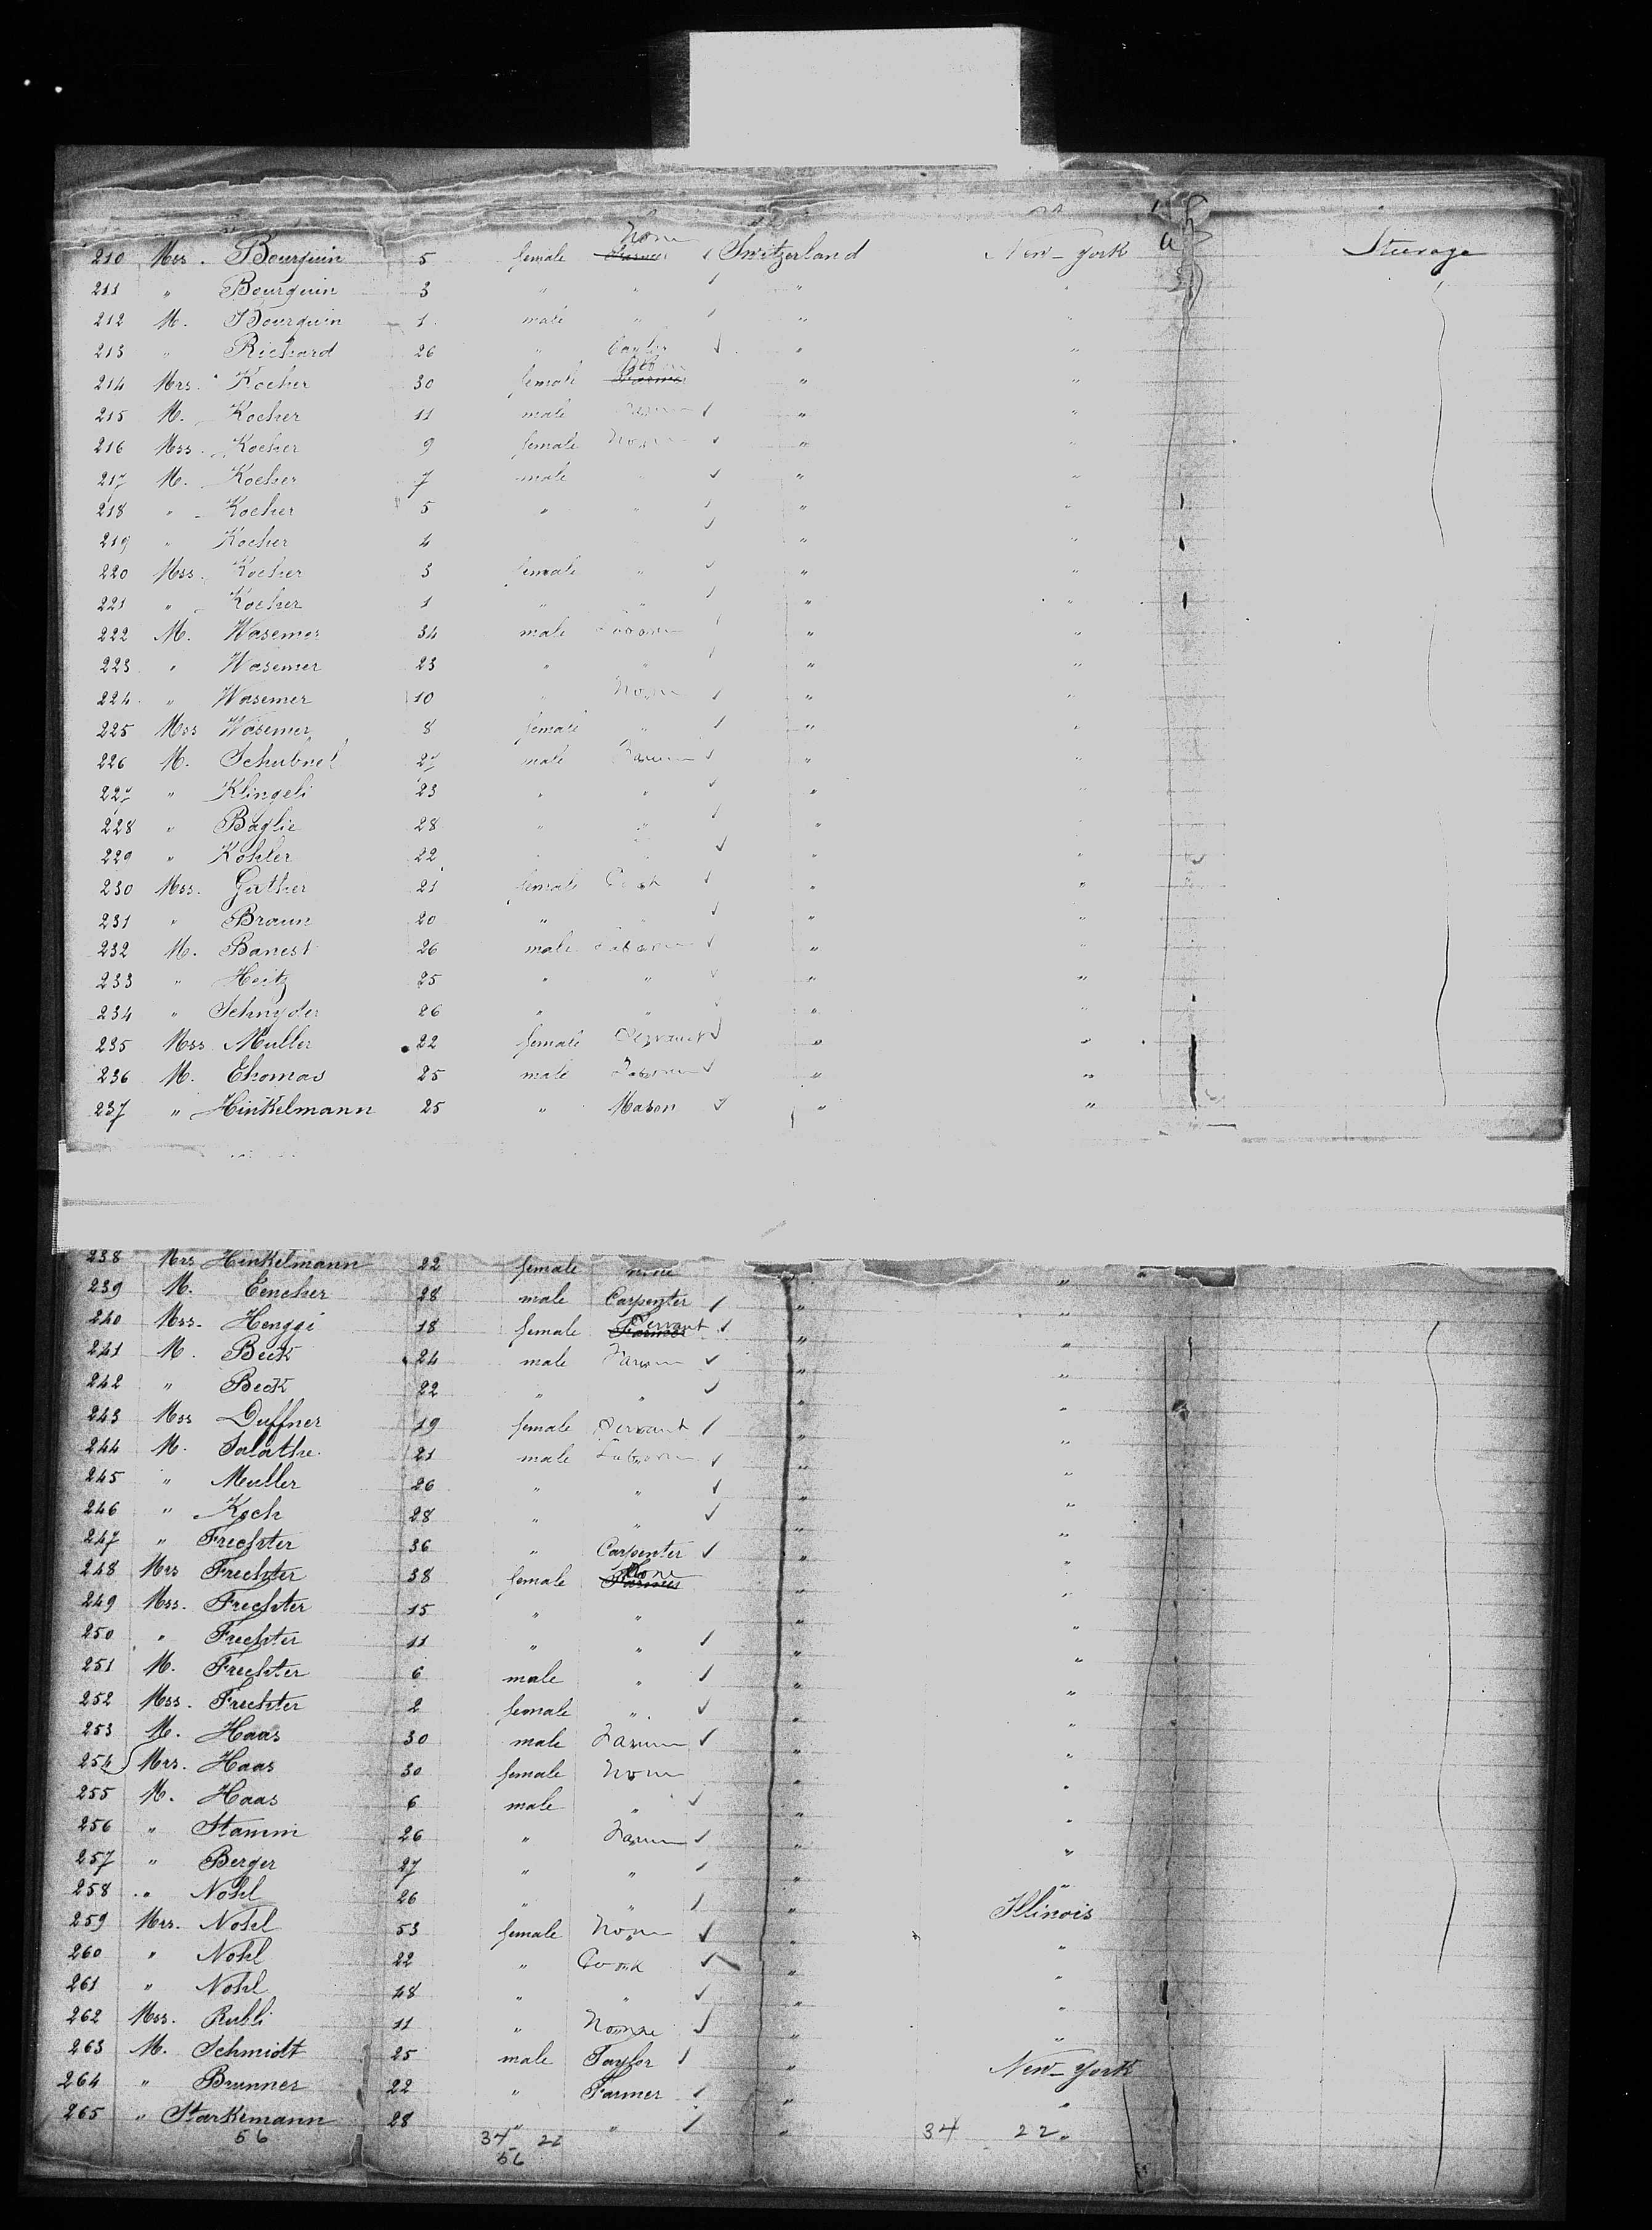 210 Mss. Bourquin 5 female None Farmer ✓ Switzerland New-York Steerage
211 " Bourquin 3 " " ✓ " "
212 M. Bourquin 1 male " ✓ " "
213 " Richard 26 " ✓ " "
214 Mrs. Kocher 30 female " "
215 M. Kocher 11 male ✓ " "
216 Mss. Kocher 9 female None ✓ " "
217 M. Kocher 7 male " ✓ " "
218 " Kocher 5 " " ✓ " "
219 " Kocher 4 ✓ " "
220 Mss. Kocher 3 female " ✓ " "
221 " Kocher 1 " " ✓ " "
222 M. Wasemer 34 male ✓ " "
223 " Wasemer 23 " " ✓ " "
224 " Wasemer 10 " None ✓ " "
225 Mss Wasemer 8 female " ✓ " "
226 M. Schubnel 27 male Farmer ✓ " "
227 " Klingeli 23 " " ✓ " "
228 " Baglie 28 " " ✓ " "
229 " Kohler 22 " " ✓ " "
230 Mss. Gather 21 female Cook ✓ " "
231 " Braun 20 " " ✓ " "
232 M. Banest 26 male Laborer ✓ " "
233 " Heitz 25 " " ✓ " "
234 " Schnyder 26 " " ✓ " "
235 Mss. Muller 22 female Servant ✓ " "
236 M. Thomas 25 male Laborer ✓ " "
237 " Hinkelmann 25 " Mason ✓ " "
238 Mrs Hinkelmann 22 female none "
239 M. Eencher 28 male Carpenter ✓ " "
240 Mss. Henggi 18 female Servant Farmer ✓ " "
241 M. Beck 24 male Farmer ✓ " "
242 " Beck 22 " " ✓ " "
243 Mss Duffner 19 female Servant ✓ " "
244 M. Salathe 21 male Laborer ✓ " "
245 " Muller 26 " " ✓ " "
246 " Koch 28 " " ✓ " "
247 " Frechter 36 " Carpenter ✓ " "
248 Mrs Frechter 38 female None Farmer " "
249 Mss. Frechter 15 " " " "
250 " Frechter 11 " " ✓ " "
251 M. Frechter 6 male " ✓ " "
252 Mss. Frechter 2 female " ✓ " "
253 M. Haas 30 male Farmer ✓ " "
254 Mrs. Haas 30 female None " "
255 M. Haas 6 male " ✓ " "
256 " Stamm 26 " Farmer ✓ " "
257 " Berger 27 " " ✓ " "
258 " Nohl 26 " " ✓ " Illinois
259 Mrs. Nohl 53 female None ✓ " "
260 " Nohl 22 " Cook ✓ " "
261 " Nohl 18 " " ✓ " "
262 Mss. Rubli 11 " None ✓ " "
263 M. Schmidt 25 male Taylor ✓ " New-York
264 " Brunner 22 " Farmer ✓ " "
265 " Starkemann 28 " " ✓ " "
56 34 22 34 22
56